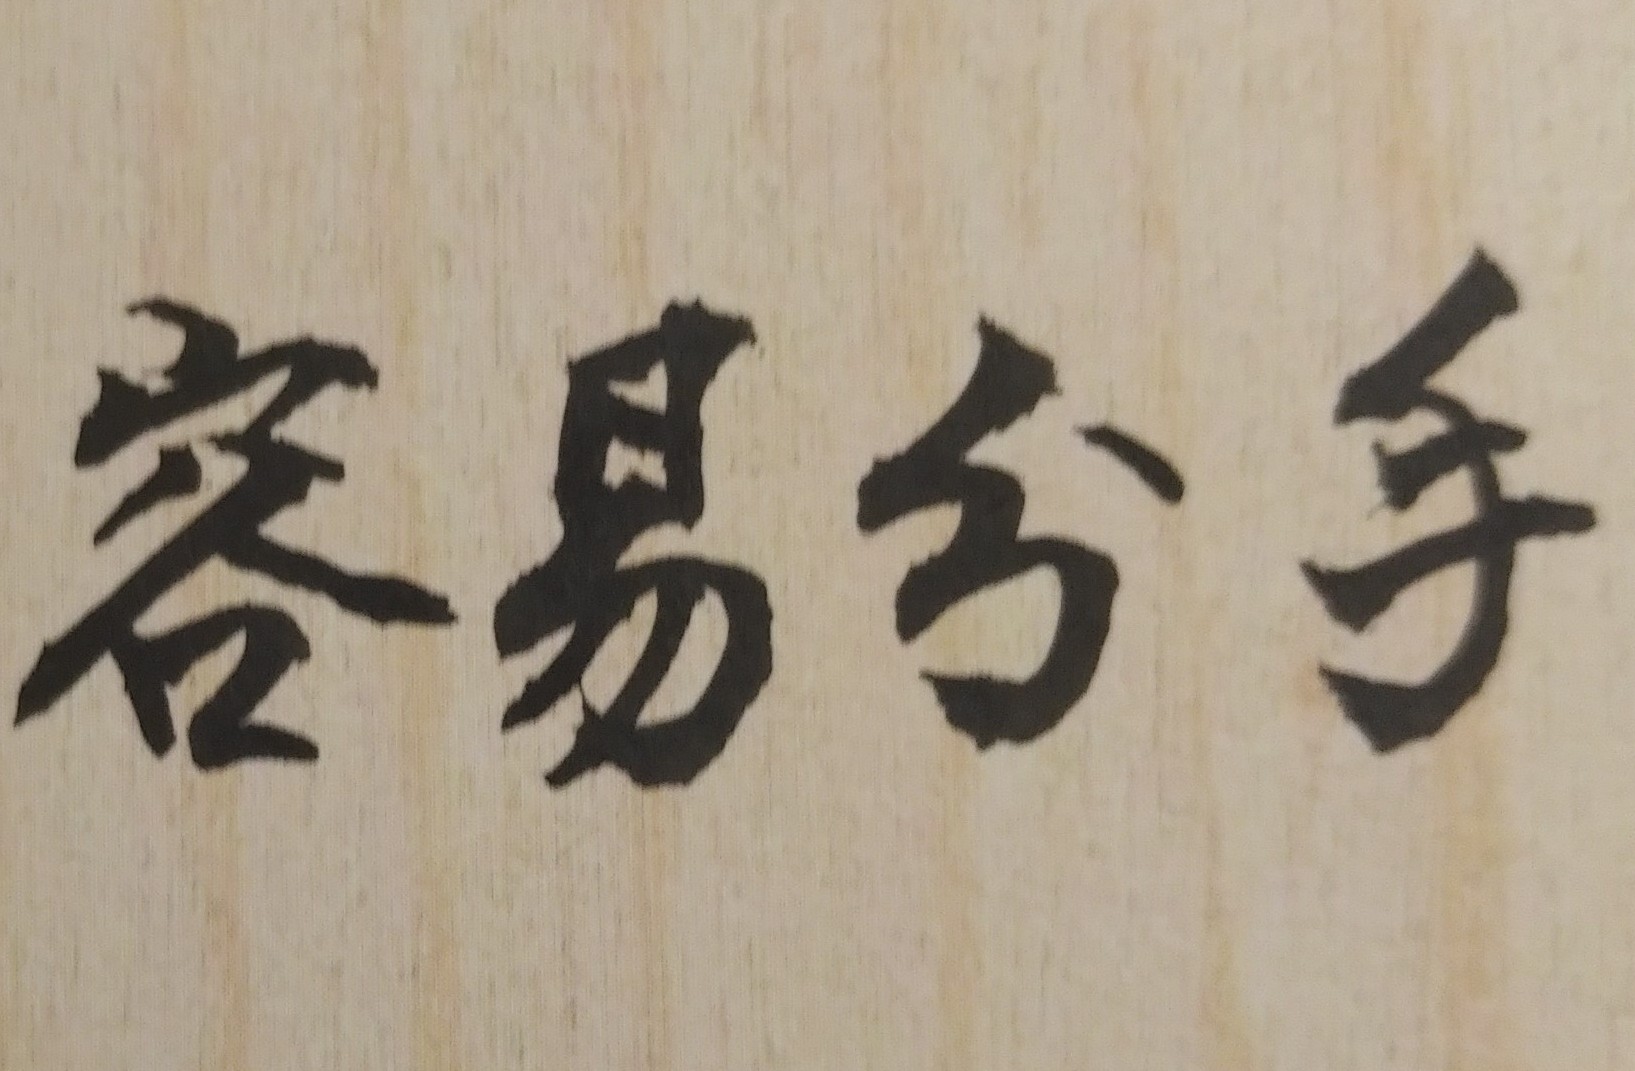 容易分手